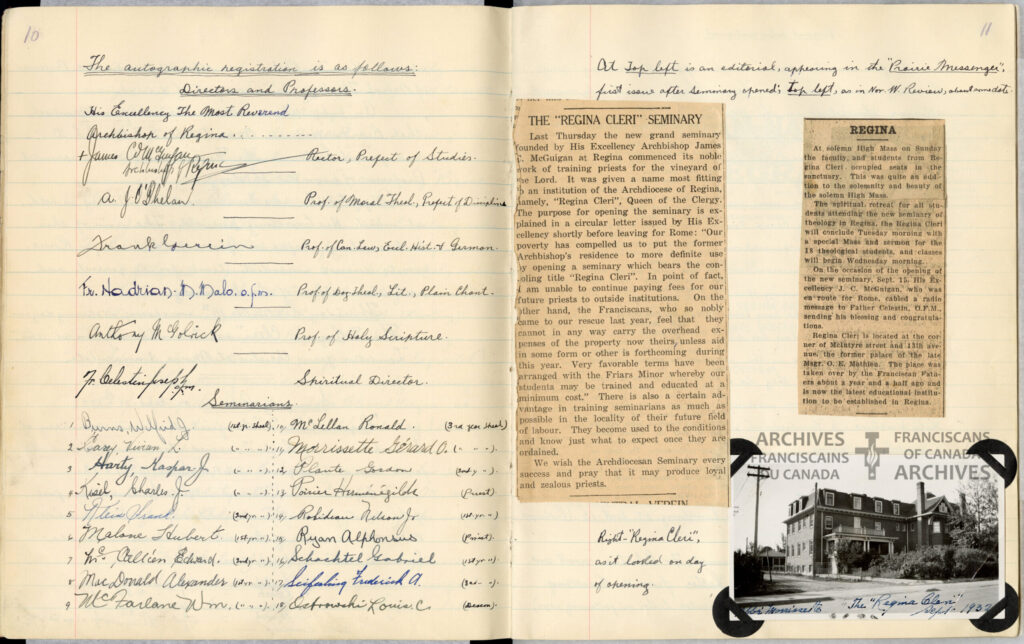 10
The autographic registration is as follows:
Directors and Professors.
His Excellency The Most Reverend
Archbishop of Regina . . . . . . . . .
+ James C. McGuigan Rector, Prefect of Studies.
Archbishop of Regina
A. J. O'Phelan. Prof. of Moral Theol., Prefect of Discipline
Frank Prof. of Can. Law, Eccl. Hist. & German.
Fr. Hadrian M. Malo. o.f.m. Prof. of Dog. Theol., Lit., Plain Chant.
Anthony McGolrick Prof. of Holy Scripture.
Fr. Celestin Joseph ofm. Spiritual Director.
Seminarians
1 Burns, Wilfrid J. (1st yr. Theol.)
2 Vivian L.
3 Harty Kaspar J.
4 Charles J.
5 Frank
6 Malone Hubert
7 Edward
8 MacDonald Alexander
9 McFarlane Wm.
10 McLellan Ronald. (3rd year Theol.)
11 Morrissette Gérard O.
12 Plante Gordon
13 Poirier Hermenégilde (Priest)
14 Robideau Nelson J.
15 Ryan Alphonsus (Priest)
16 Schachtel Gabriel
17 Seiferling Frederick A.
18 Ostrowski Louis C. (Deacon)
11
At top left is an editorial, appearing in the "Prairie Messenger",
first issue after seminary opened; top left, as in Nor. W. Review, about same date.
THE "REGINA CLERI" SEMINARY
Last Thursday the new grand seminary
founded by His Excellency Archbishop James
C. McGuigan at Regina commenced its noble
work of training priests for the vineyard of
the Lord. It was given a name most fitting
to an institution of the Archdiocese of Regina,
namely, "Regina Cleri", Queen of the Clergy.
The purpose for opening the seminary is ex-
plained in a circular letter issued by His Ex-
cellency shortly before leaving for Rome: "Our
poverty has compelled us to put the former
Archbishop's residence to more definite use
by opening a seminary which bears the con-
soling title "Regina Cleri". In point of fact,
I am unable to continue paying fees for our
future priests to outside institutions. On the
other hand, the Franciscans, who so nobly
came to our rescue last year, feel that they
cannot in any way carry the overhead ex-
penses of the property now theirs, unless aid
in some form or other is forthcoming during
this year. Very favorable terms have been
arranged with the Friars Minor whereby our
students may be trained and educated at a
minimum cost." There is also a certain ad-
vantage in training seminarians as much as
possible in the locality of their future field
of labour. They become used to the conditions
and know just what to expect once they are
ordained.
We wish the Archdiocesan Seminary every
success and pray that it may produce loyal
and zealous priests.
REGINA
At solemn High Mass on Sunday
the faculty and students from Re-
gina Cleri occupied seats in the
sanctuary. This was quite an ad-
dition to the solemnity and beauty of
the solemn High Mass.
The spiritual retreat for all stu-
dents attending the new seminary of
theology in Regina, the Regina Cleri
will conclude Tuesday morning with
a special Mass and sermon for the
18 theological students, and classes
will begin Wednesday morning.
On the occasion of the opening of
the new seminary, Sept. 15, His Ex-
cellency J. C. McGuigan, who was
en route for Rome, cabled a radio
message to Father Celestin, O.F.M.,
sending his blessing and congratula-
tions.
Regina Cleri is located at the cor-
ner of McIntyre street and 13th ave-
nue, the former palace of the late
Msgr. O. E. Mathieu. The place was
taken over by the Franciscan Fath-
ers about a year and a half ago and
is now the latest educational institu-
tion to be established in Regina.
Right "Regina Cleri",
as it looked on day
of opening.
ARCHIVES FRANCISCAINS DU CANADA
FRANCISCANS OF CANADA ARCHIVES
The "Regina Cleri"
Sept. 1932